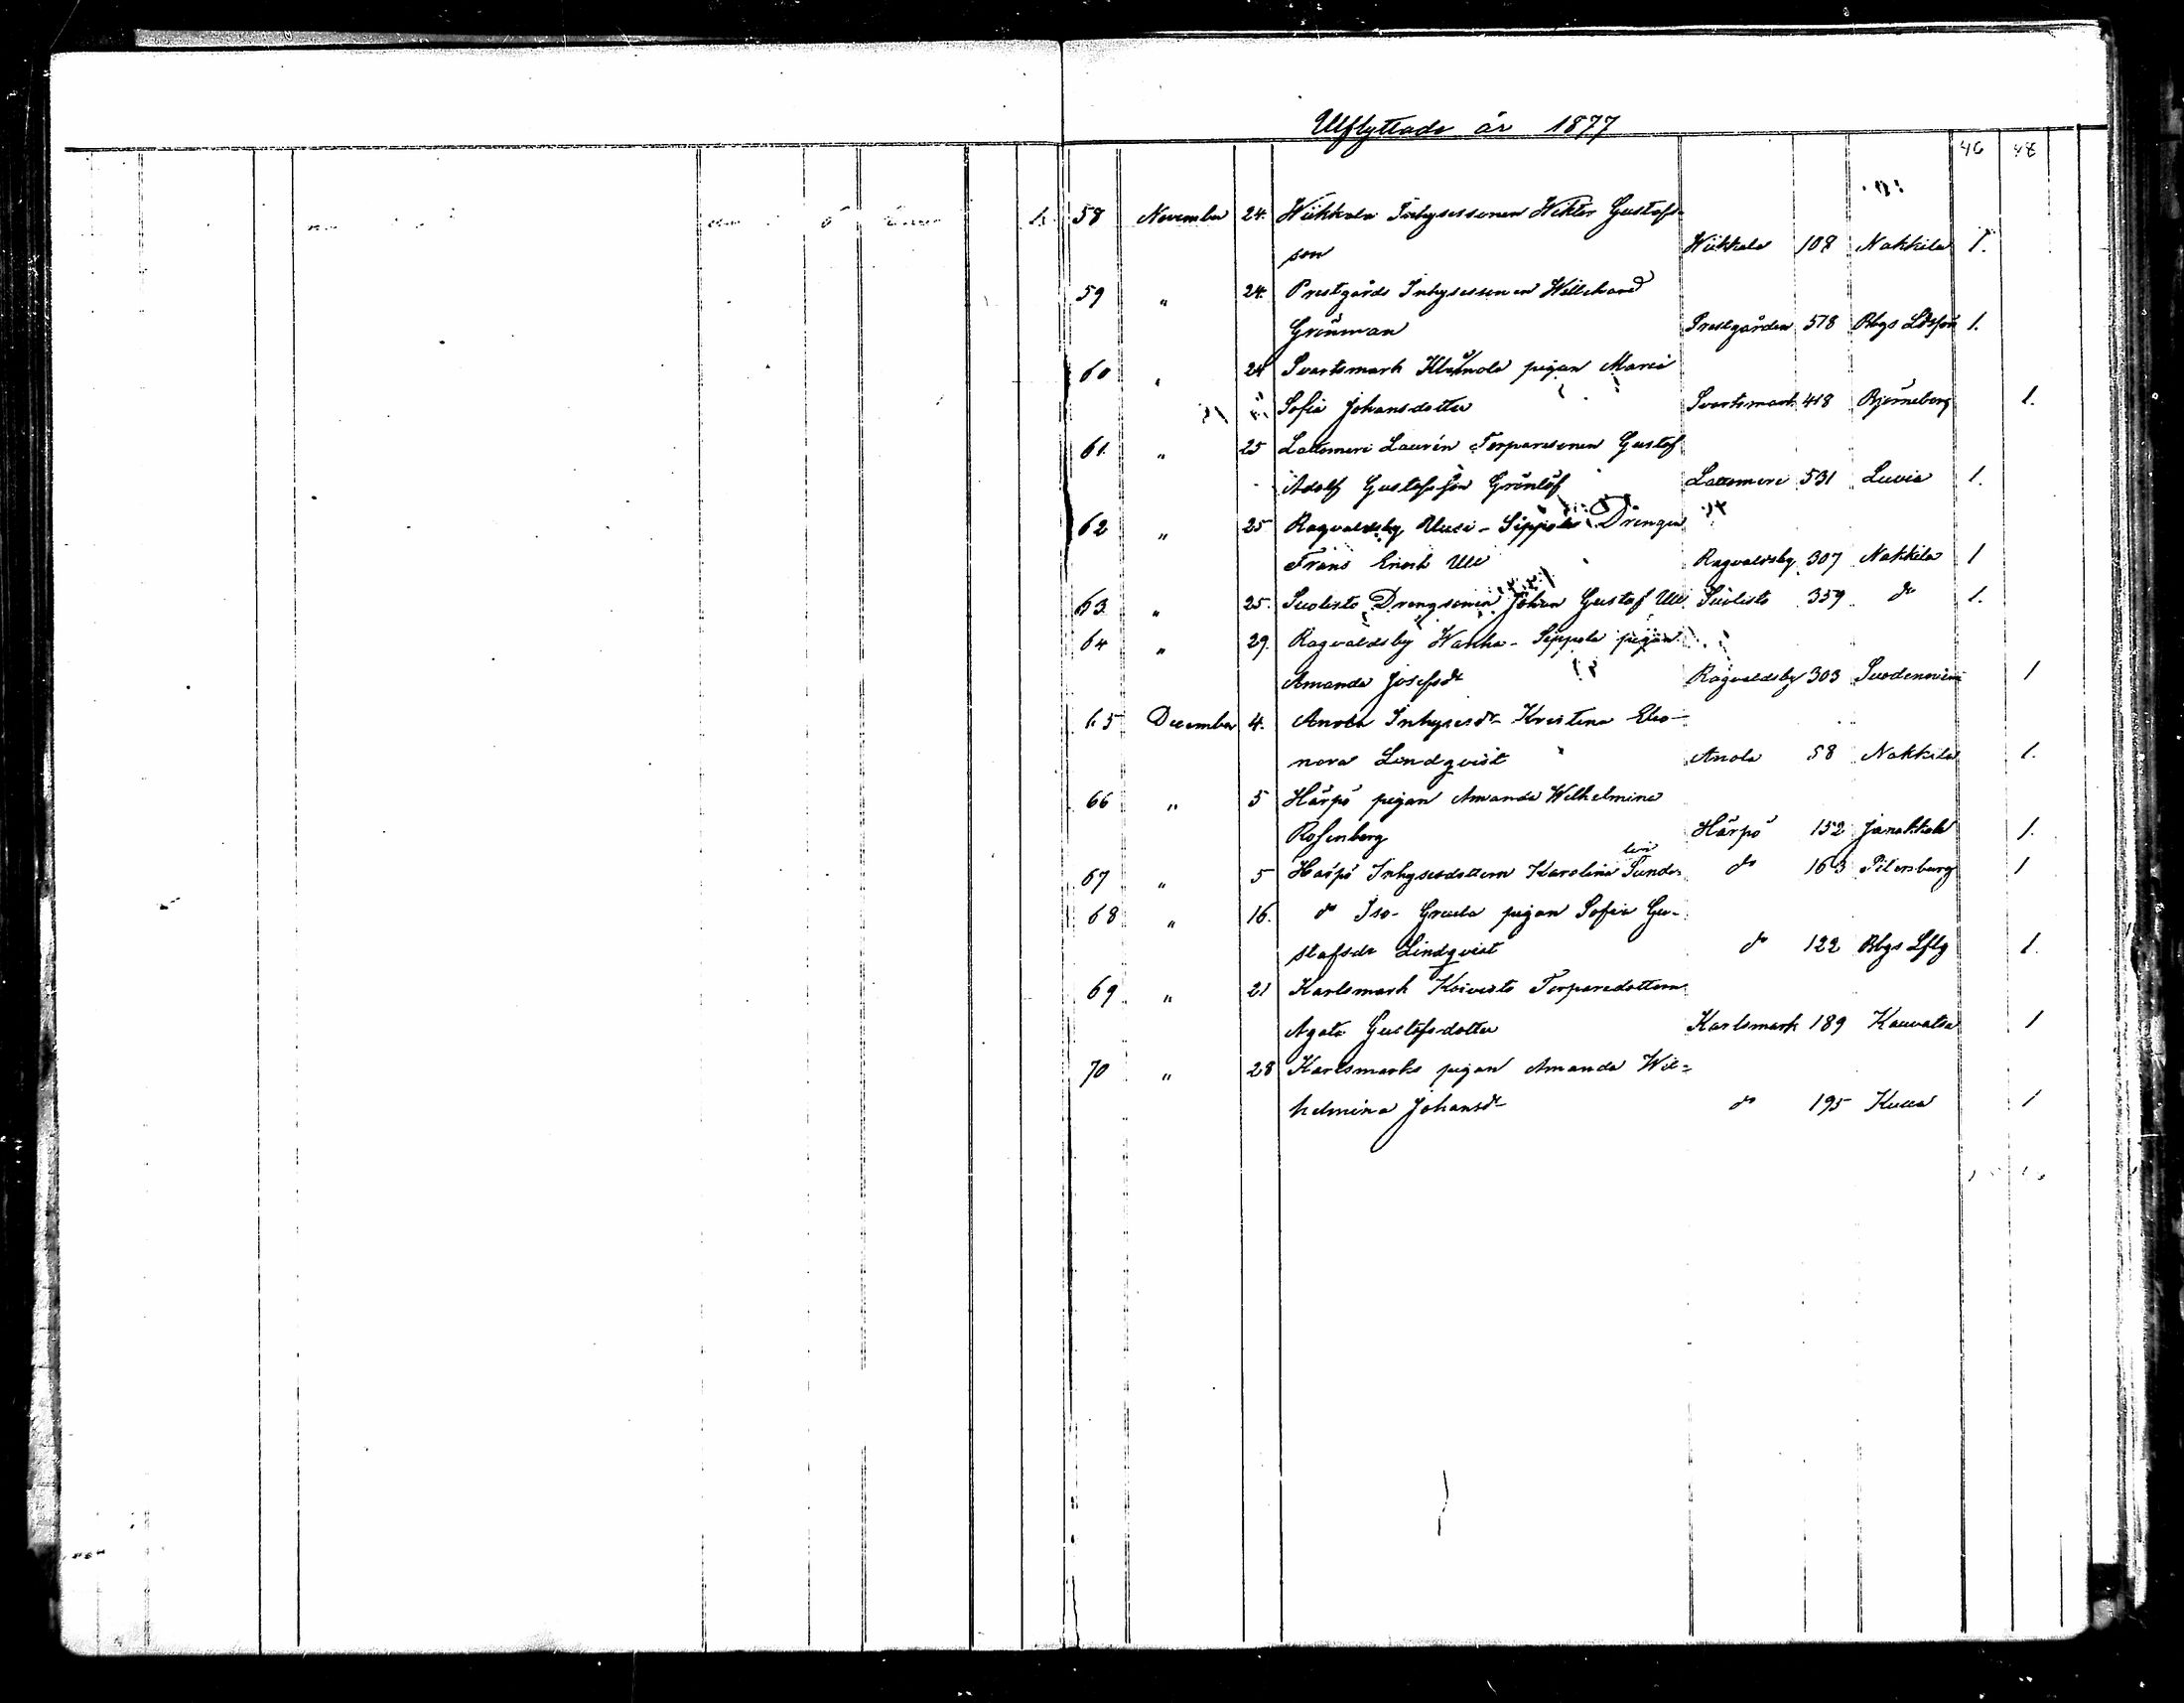 Utflyttade år 1877
46 48
58 November 24. Wiikkala Inhysessonen Wiktor Gustafs-
son Wiikkala 108 Nakkila 1.
59 " 24. Prestgårds Inhysessonen Willehard
Grönman Prestgården 578 Bbgs Ldsförs 1.
60 " 24 Svartsmark pigan Maria
Sofia Johansdotter Svartsmark 418 Björneborg 1.
61. " 25 Lattomeri Laurén Torparesonen Gustaf
Adolf Gustafsson Grönlöf Lattomeri 531 Luvia 1.
62 " 25 Ragvaldsby Uusi-Sippola Drengen
Frans Enok Ull Ragvaldsby 307 Nakkila 1
63 " 25. Suolisto Drengsonen Johan Gustaf Ull Suolisto 359 do 1.
64 " 29. Ragvaldsby Wanha-Sippola pigan
Amanda Josefsdr Ragvaldsby 303 Suodenniemi 1
65 December 4. Anola Inhysesdr Kristina Eleo-
nora Lindqvist Anola 58 Nakkila 1.
66 " 5 Härpö pigan Amanda Wilhelmina
Rosenberg Härpö 152 Janakkala 1.
lin
67 " 5 Härpö Inhysesdottern Karolina Sunde- do 163 Petersburg 1
68 " 16. do Iso-Greula pigan Sofia Gu-
stafsdr Lindqvist do 122 Bbgs Lflg 1.
69 " 21 Karlsmark Koivisto Torparedottern
Agata Gustafsdotter Karlsmark 189 Kauvatsa 1
70 " 28 Karlsmarks pigan Amanda Wil-
helmina Johansdr do 195 Kumo 1